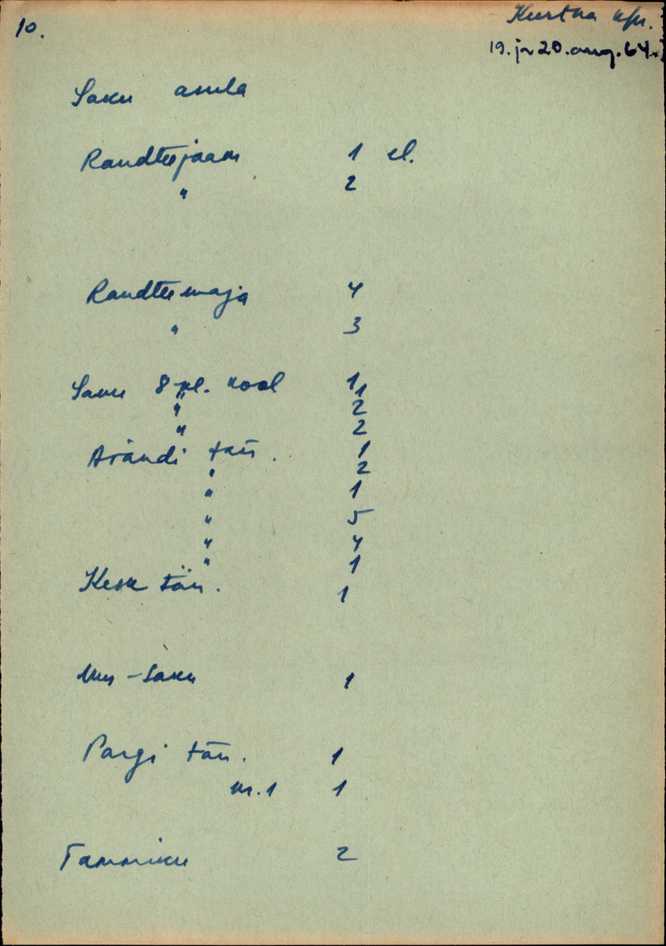 10.
Kurtna
19. ja 20. aug. 64.
Saku asula
Raudteejaam 1 el.
" 2
Raudteemaja 4
" 3
Saku 8 kl. kool 1
" 1
" 2
" 2
Aiandi tän. 1
" 2
" 1
" 5
" 4
" 1
Kesk tän. 1
Uus-Saku 1
Pargi tän. 1
nr. 1 1
Tammiku 2